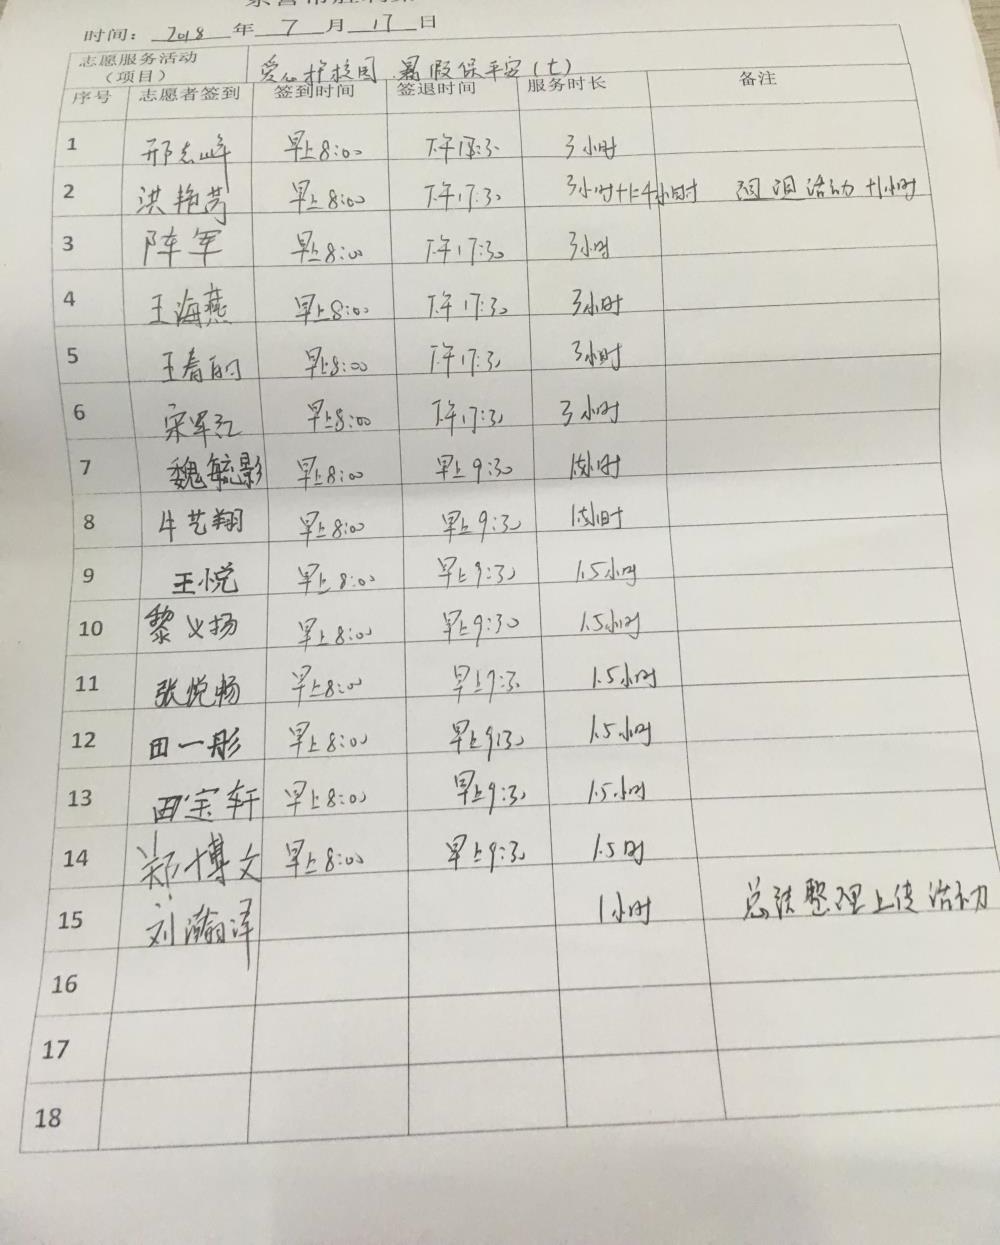 时间： 2018 年 7 月 17 日
志愿服务活动（项目） 爱心护校园 暑假保平安（七）
序号 志愿者签到 签到时间 签退时间 服务时长 备注
1 邢志峰 早上8:00 下午17:30 3小时
2 洪艳芳 早上8:00 下午17:30 3小时+1=4小时 活动+1小时
3 陈军 早上8:00 下午17:30 3小时
4 王海燕 早上8:00 下午17:30 3小时
5 王春丽 早上8:00 下午17:30 3小时
6 宋军红 早上8:00 下午17:30 3小时
7 魏毓影 早上8:00 早上9:30 1.5小时
8 牛艺翔 早上8:00 早上9:30 1.5小时
9 王悦 早上8:00 早上9:30 1.5小时
10 黎义扬 早上8:00 早上9:30 1.5小时
11 张悦畅 早上8:00 早上9:30 1.5小时
12 田一彤 早上8:00 早上9:30 1.5小时
13 田宝轩 早上8:00 早上9:30 1.5小时
14 郑博文 早上8:00 早上9:30 1.5时
15 刘瀚泽 1小时 总结整理上传活动
16
17
18